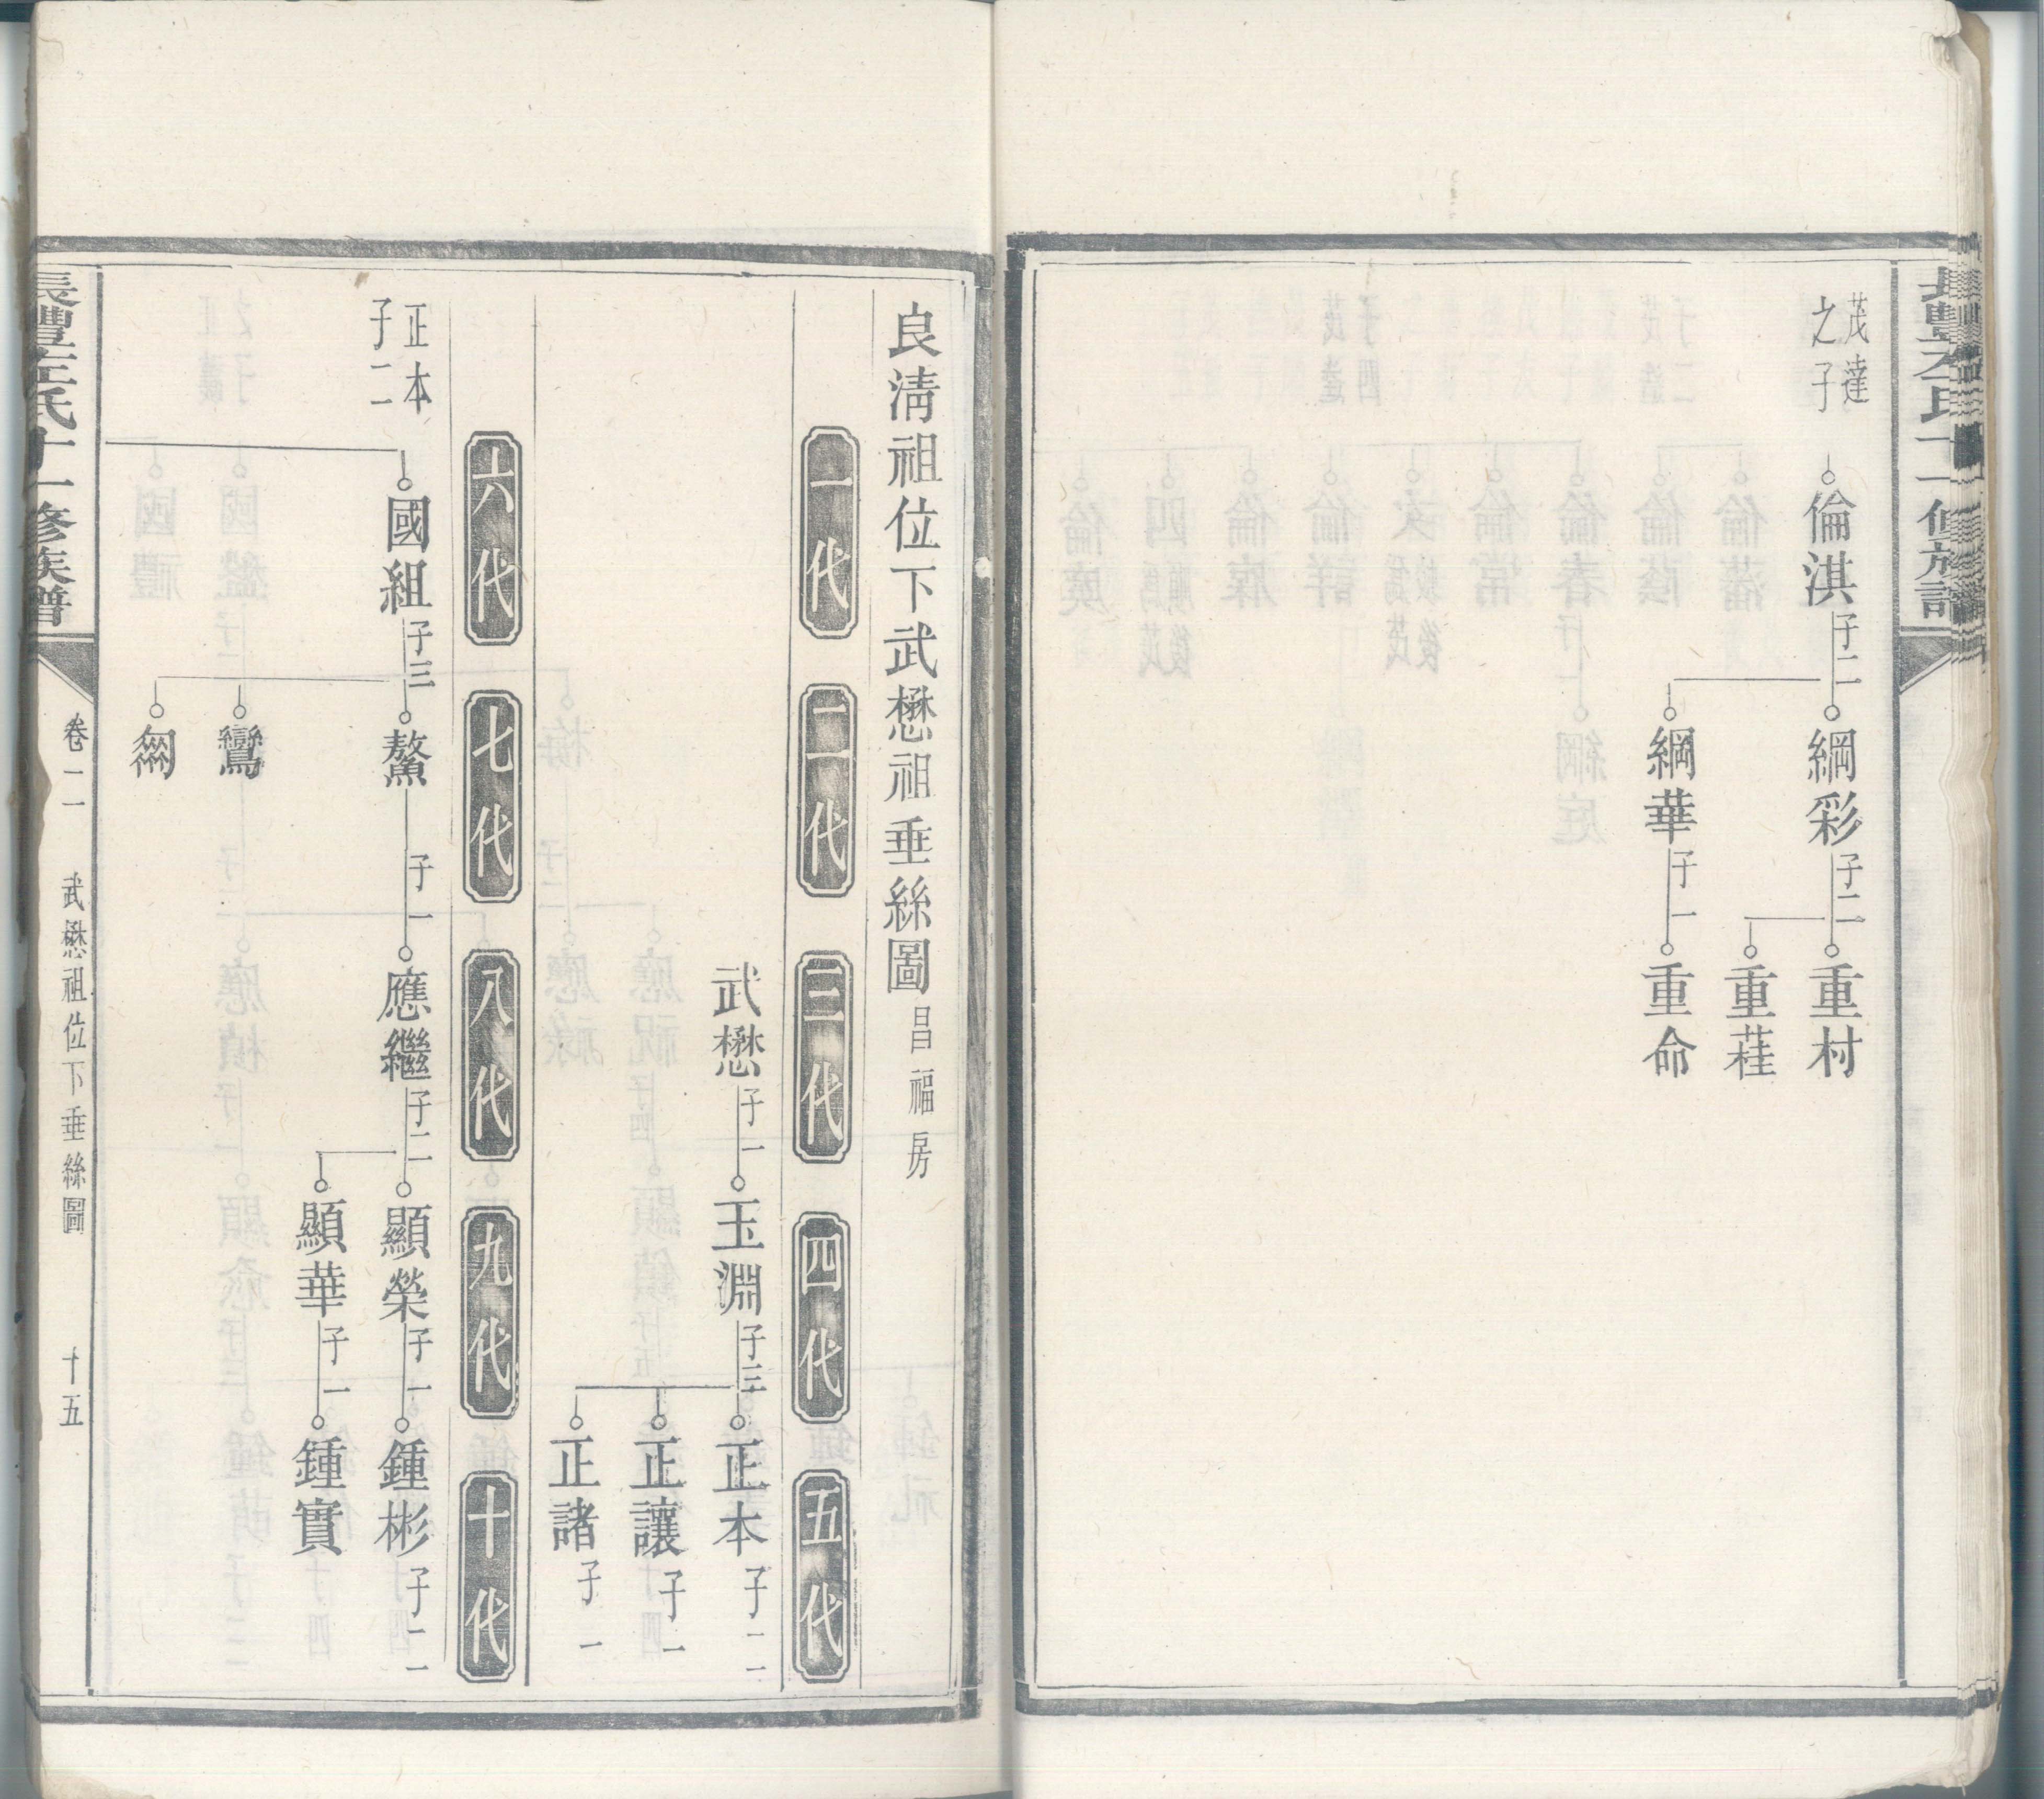 茂達
之子
倫淇 子二
綱彩 子二
重村
重萑
綱華 子一
重命
良清祖位下武懋祖垂絲圖 昌福房
一代
二代
三代
四代
五代
武懋 子一
玉淵 子三
正本 子二
正讓 子一
正諸 子一
六代
七代
八代
九代
十代
正本
子二
國組 子三
鰲 子一
應繼 子二
顯榮 子一
鍾彬 子二
顯華 子一
鍾實
鸞
長豐左氏十一修族譜
卷二
武懋祖位下垂絲圖
十五